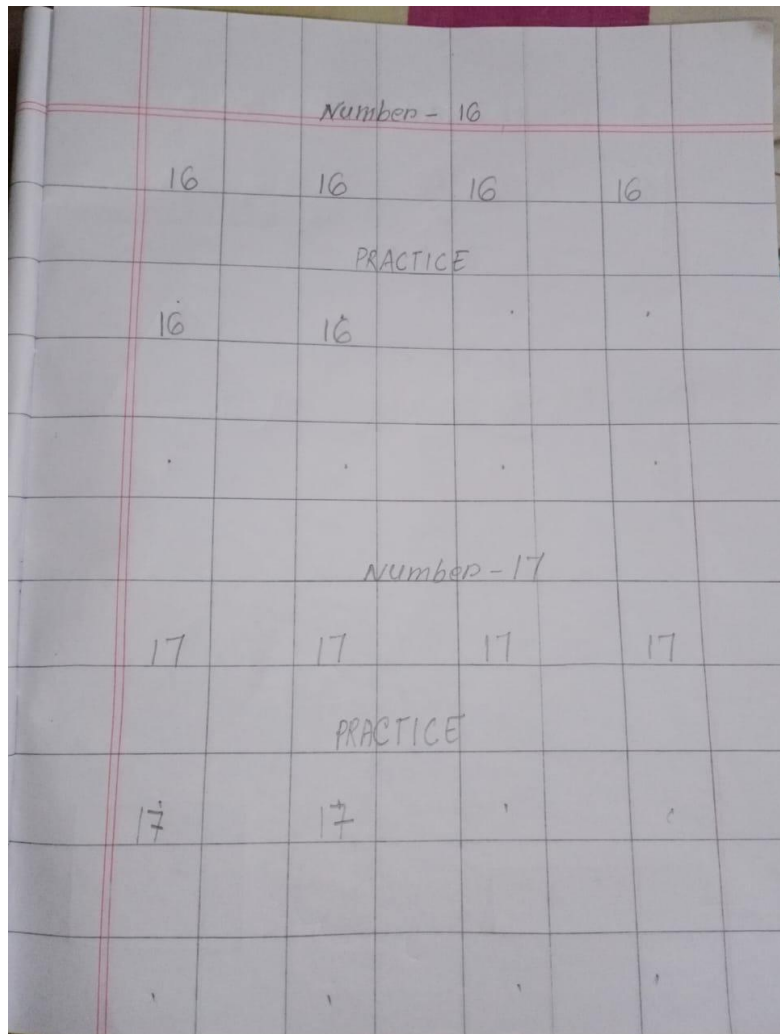 Number - 16
16 16 16 16
PRACTICE
16 16
Number - 17
17 17 17 17
PRACTICE
17 17